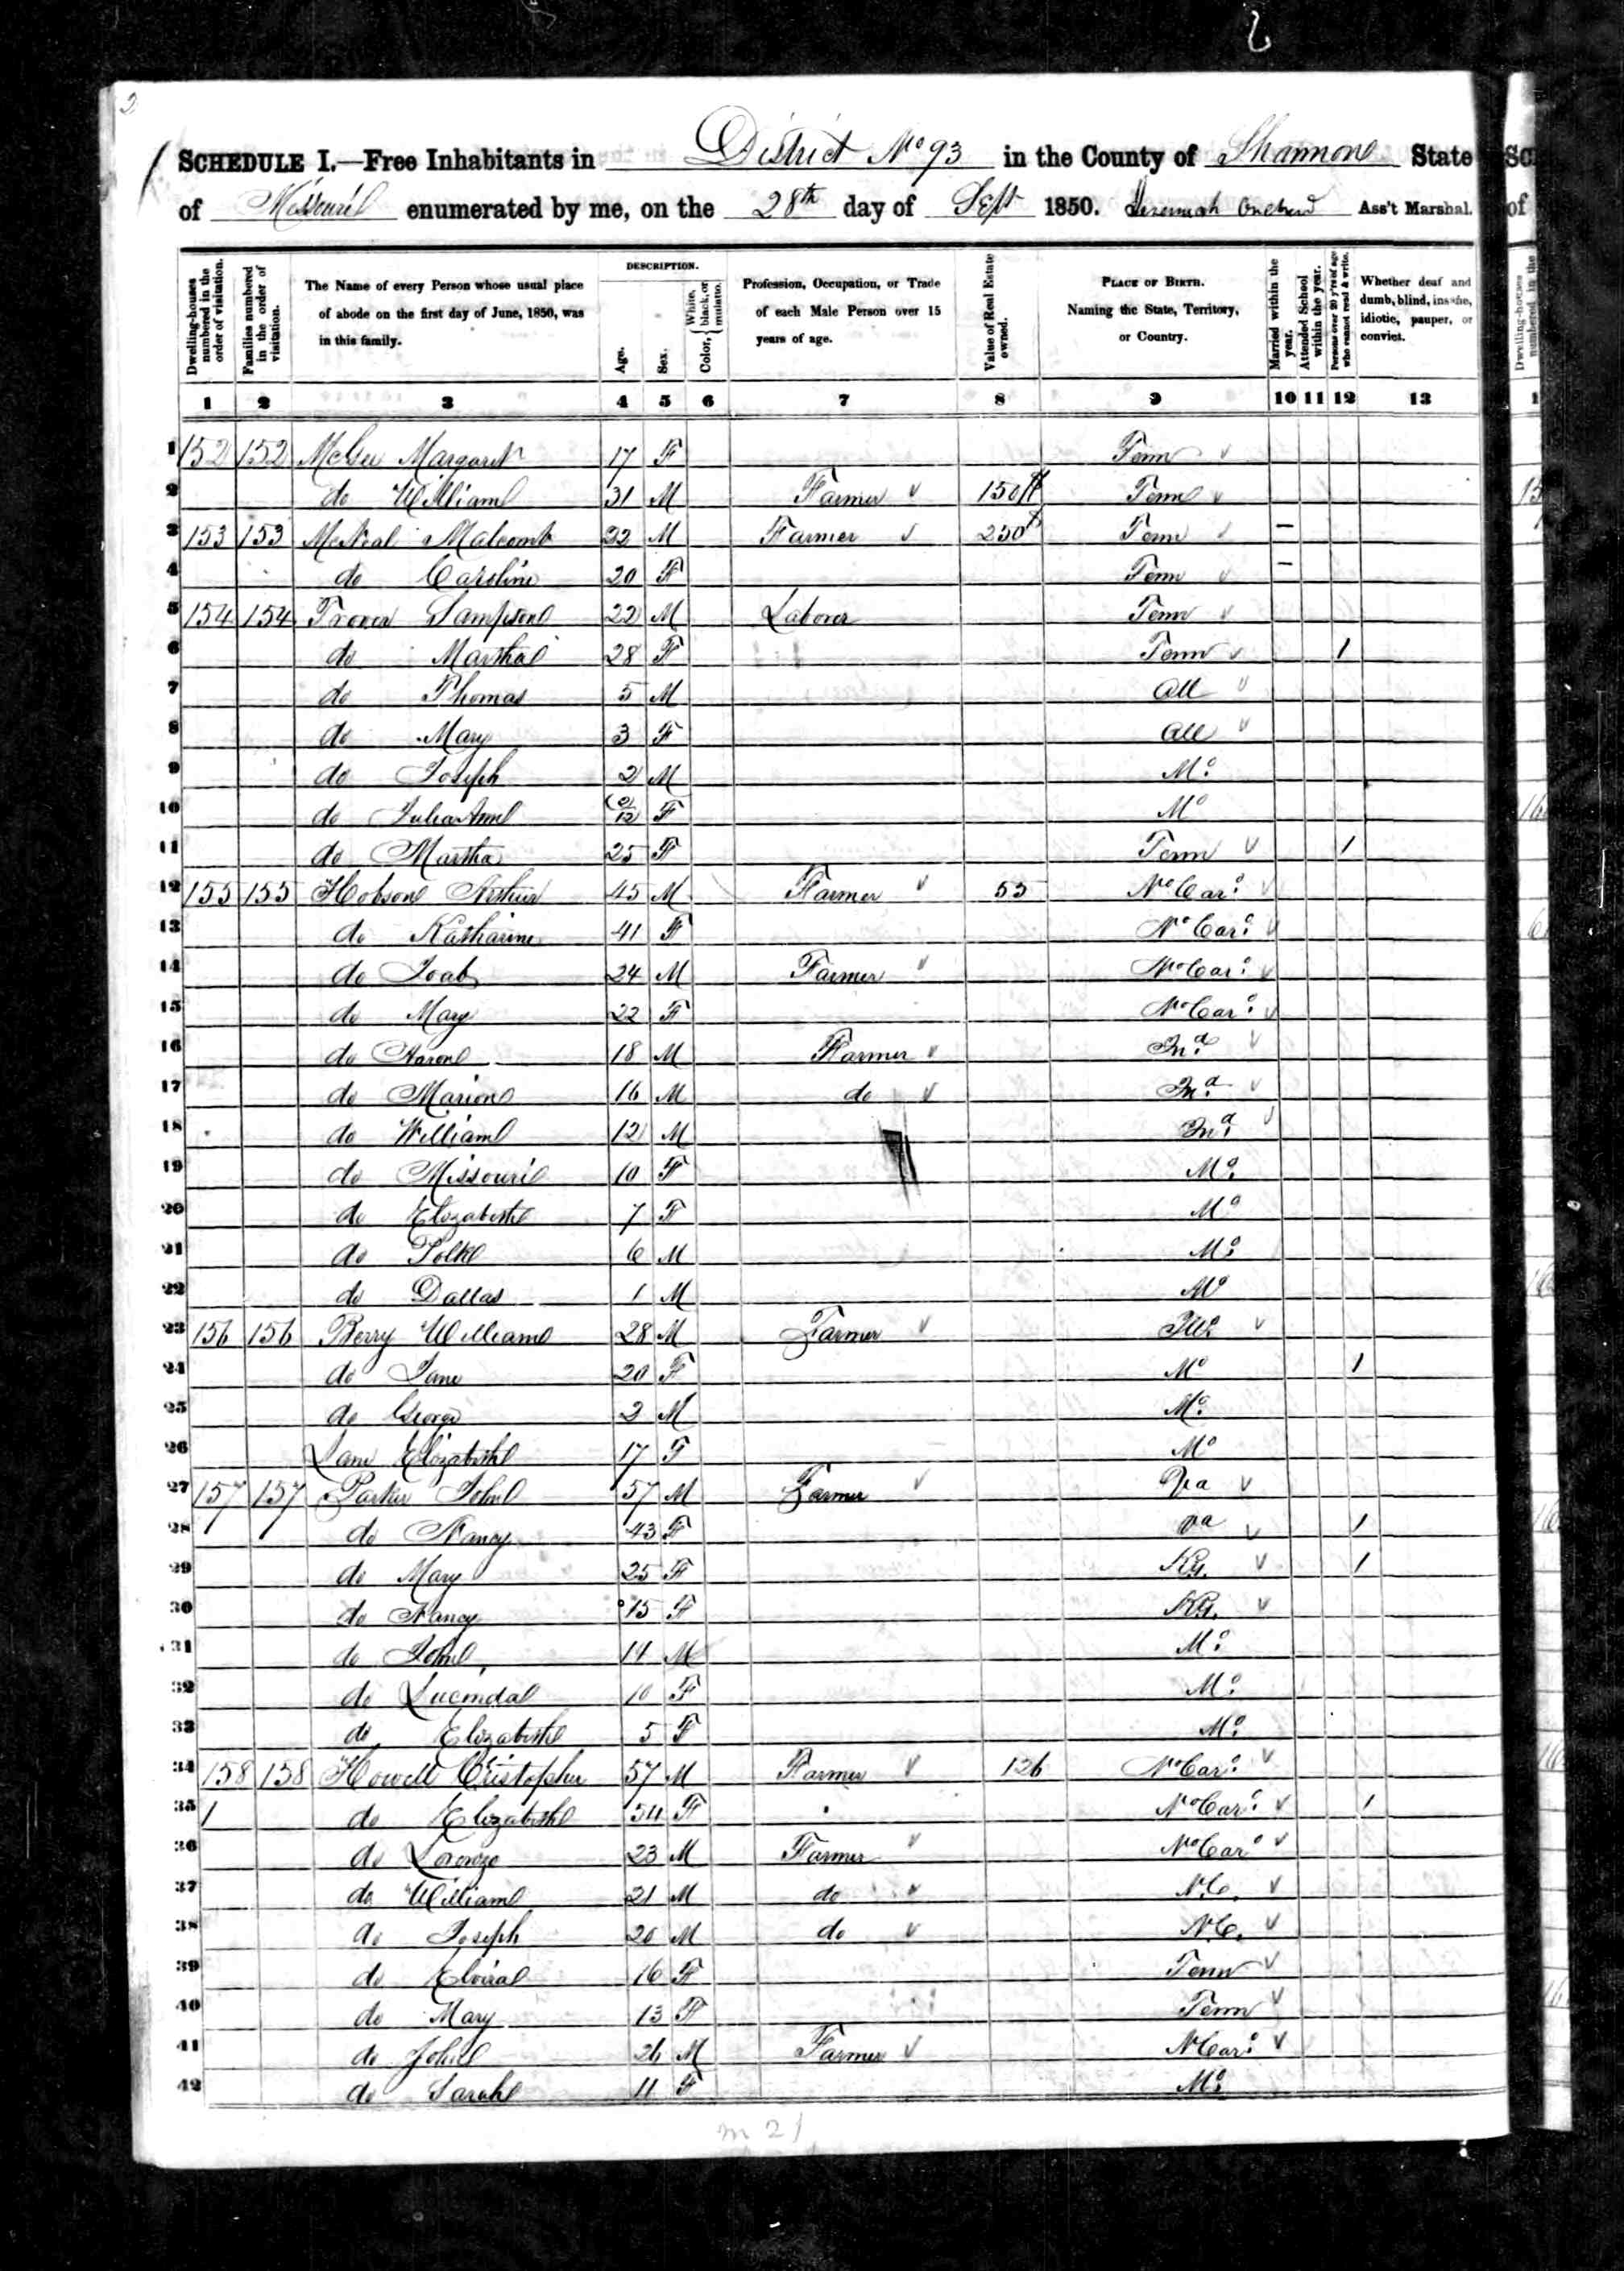 2
SCHEDULE I.—Free Inhabitants in District No 93 in the County of Shannon State
of Missouri enumerated by me, on the 28th day of Sept 1850. Jeremiah Ass't Marshal.
Dwelling-houses numbered in the order of visitation.
Families numbered in the order of visitation.
The Name of every Person whose usual place of abode on the first day of June, 1850, was in this family.
DESCRIPTION.
Age.
Sex.
Color, { White, black, or mulatto.
Profession, Occupation, or Trade of each Male Person over 15 years of age.
Value of Real Estate owned.
PLACE OF BIRTH. Naming the State, Territory, or Country.
Married within the year.
Attended School within the year.
Persons over 20 y'rs of age who cannot read & write.
Whether deaf and dumb, blind, insane, idiotic, pauper, or convict.
1 2 3 4 5 6 7 8 9 10 11 12 13
1 152 152 McGee Margaret 17 F Tenn
2 do William 31 M Farmer 150 Tenn
3 153 153 McNeal Malcomb 22 M Farmer 250 Tenn –
4 do Caroline 20 F Tenn –
5 154 154 Sampson 22 M Laborer Tenn
6 do Martha 28 F Tenn 1
7 do Thomas 5 M All
8 do Mary 3 F All
9 do Joseph 2 M Mo
10 do Julia Ann 2/12 F Mo
11 do Martha 25 F Tenn 1
12 155 155 Hobson Arthur 45 M Farmer 55 No Caro
13 do Katharine 41 F No Caro
14 do Joab 24 M Farmer No Caro
15 do Mary 22 F No Caro
16 do Aaron 18 M Farmer Ind
17 do Marion 16 M do Ind
18 do William 12 M Ind
19 do Missouri 10 F Mo
20 do Elizabeth 7 F Mo
21 do Polk 6 M Mo
22 do Dallas 1 M Mo
23 156 156 Berry William 28 M Farmer Ills
24 do Jane 20 F Mo 1
25 do George 2 M Mo
26 Lane Elizabeth 17 F Mo
27 157 157 Parker John 57 M Farmer Va
28 do Nancy 43 F Va 1
29 do Mary 25 F Ky. 1
30 do Nancy 15 F Ky.
31 do John 14 M Mo
32 do Lucinda 10 F Mo
33 do Elizabeth 5 F Mo
34 158 158 Howell Cristopher 57 M Farmer 126 No Caro
35 1 do Elizabeth 54 F No Caro 1
36 do Lorenzo 23 M Farmer No Caro
37 do William 21 M do N.C.
38 do Joseph 20 M do N.C.
39 do Elvira 16 F Tenn
40 do Mary 13 F Tenn
41 do John 26 M Farmer N Caro
42 do Sarah 11 F Mo
m 21